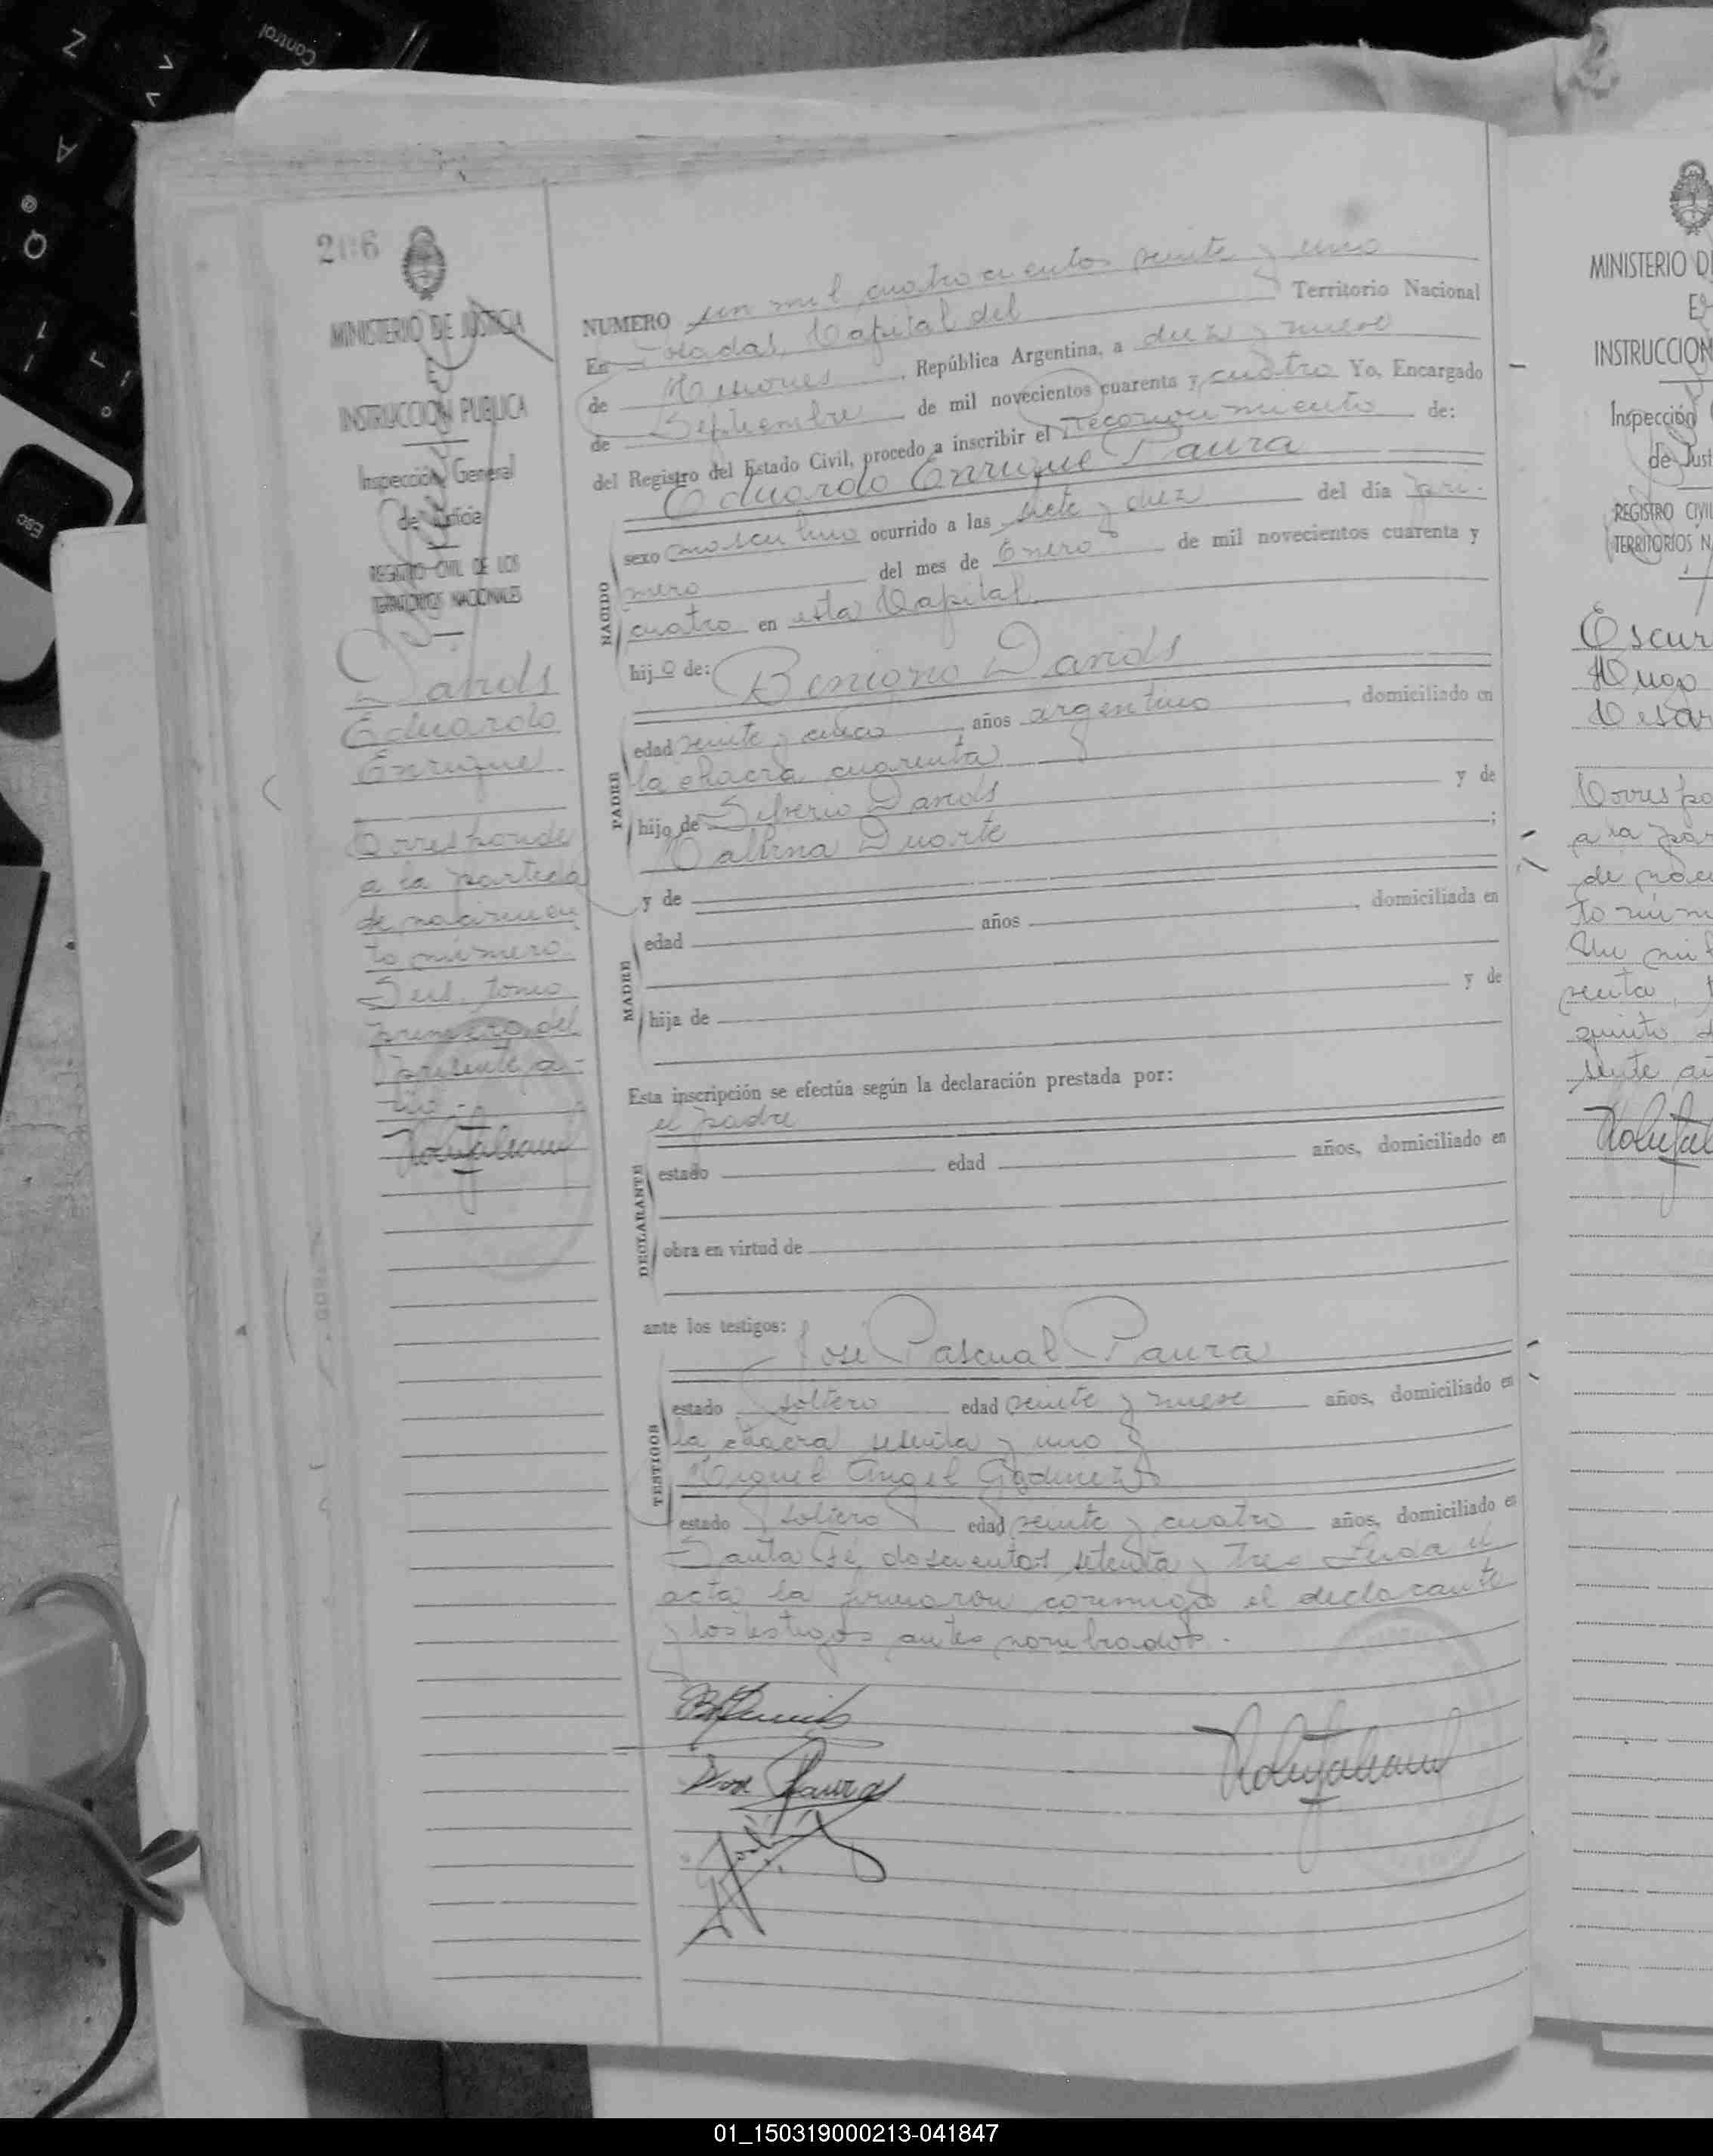 206
MINISTERIO DE JUSTICIA
E
INSTRUCCION PUBLICA
Inspección General
de Justicia
REGISTRO CIVIL DE LOS
TERRITORIOS NACIONALES
Eduardo
Enrique
Corresponde
a la partida
de nacimien
to número
Seis, tomo
primero del
presente a-
ño.-
NUMERO un mil cuatrocientos veinte y uno
En Posadas, Capital del Territorio Nacional
de Misiones, República Argentina, a diez y nueve
de Septiembre de mil novecientos cuarenta y cuatro Yo, Encargado
del Registro del Estado Civil, procedo a inscribir el reconocimiento de:
Eduardo Enrique Paura
NACIDO
sexo masculino ocurrido a las siete y diez del día pri-
mero del mes de Enero de mil novecientos cuarenta y
cuatro en esta Capital
hijo de: Benigno
PADRE
edad veinte y cinco años argentino, domiciliado en
la chacra cuarenta
hijo de Silverio y de
Duarte;
y de
MADRE
edad años, domiciliada en
hija de y de
Esta inscripción se efectúa según la declaración prestada por:
el padre
DECLARANTE
estado edad años, domiciliado en
obra en virtud de
ante los testigos:
José Pascual Paura
TESTIGOS
estado soltero edad veinte y nueve años, domiciliado en
la chacra y uno y
Miguel Angel
estado soltero edad veinte y cuatro años, domiciliado en
Santa Fé doscientos setenta y tres Leida el
acta la firmaron conmigo el declarante
y los testigos antes nombrados.
José Paura
MINISTERIO D
E
INSTRUCCION
Inspección
de Just
REGISTRO CIVIL
TERRITORIOS N
Escur
Hugo
Cesar
Correspo
a la par
de naci
to núm
Un mil
quinto
sente añ
Control
Esc
Z
A
Q
01_150319000213-041847